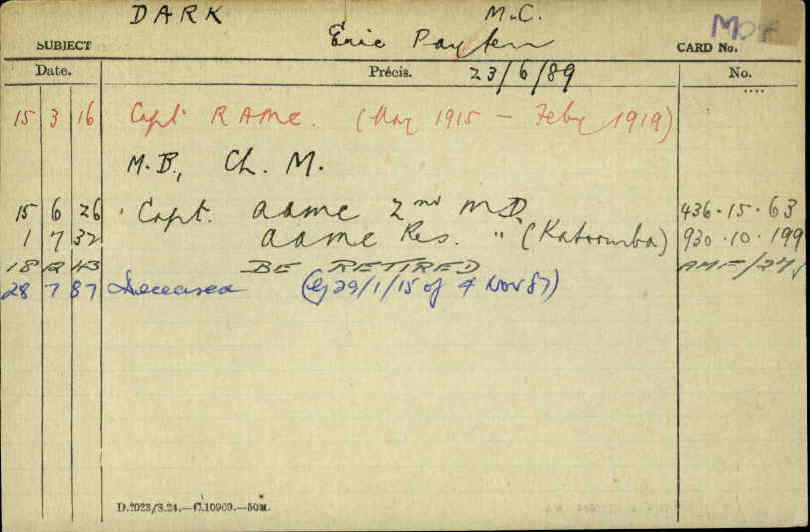 DARK M.C.
SUBJECT Eric Payten CARD No.
Date. Précis. 23/6/89 No.
15 3 16 Capt RAMC. (May 1915 – Feby 1919)
M.B., Ch. M.
15 6 26 Capt. AAMC 2nd M.D. 436.15.63
1 7 32 AAMC Res. " (Katoomba) 930.10.199
18 12 43 BE RETIRED AMF/274
28 7 87 Deceased (29/1/15 of 4 Nov 87)
D.2023/3.24.—C.10909.—50M.